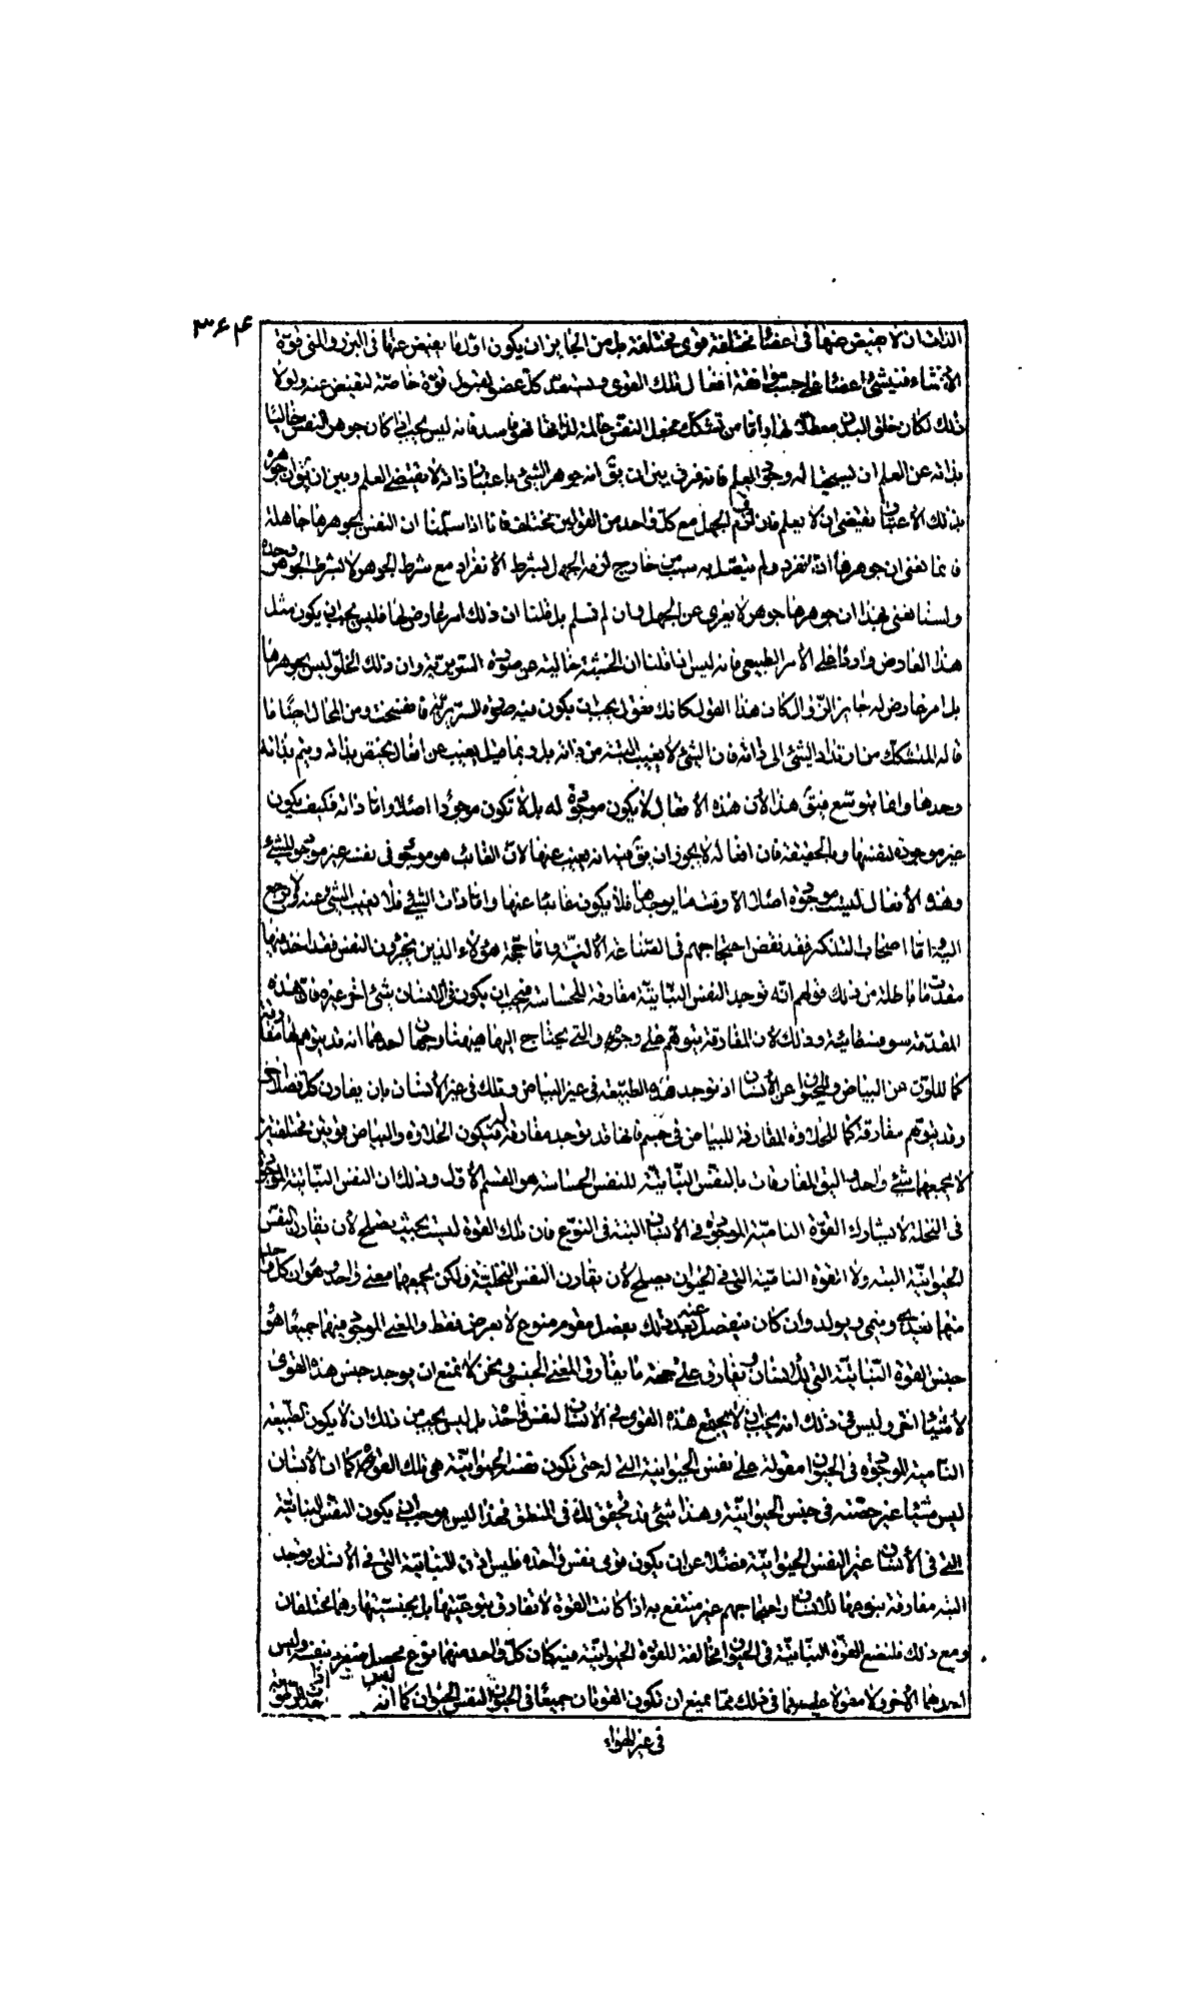 ٣۶۴
الذات ان لا يفيض عنها فى اعضاء مختلفة قوى مختلفة بل من الجايز ان يكون اول ما يفيض عنها فى البزر والمنى قوة
الانشاء فينشئ اعضاء على حسب موافقة افعال تلك القوى ويستعد كل عضو لقبول قوة خاصة لتفيض عنه ولولا
ذلك لكان خلق البدن معطلا لها واما من تشكك فجعل النفس عالمة لذاتها فهو فاسد فانه ليس يجب اذا كان جوهر النفس خاليا
بذاته عن العلم ان يستحيل له وجود العلم فانه فرق بين ان يق انه جوهر الشئ باعتبار ذاته لا يقتضى العلم وبين ان يق ان جوهره
بذلك الاعتبار يقتضى ان لا يعلم فان لزوم الجهل مع كل واحد من القولين مختلف فانا اذا سلمنا ان النفس لجوهرها جاهلة
فانما نعنى ان جوهرها اذا انفرد ولم يتصل به سبب من خارج لزمه الجهل بشرط الانفراد مع شرط الجوهر لا بشرط الجوهر وحده
ولسنا نعنى بهذا ان جوهرها جوهر لا يعرى عن الجهل وان لم نسلم بل قلنا ان ذلك امر عارض لها فليس يجب ان يكون مثل
هذا العارض واردا على الامر الطبيعى فانه ليس اذا قلنا ان الخشبة خالية عن صورة السريرية وان ذلك الخلو ليس لجوهرها
بل امر عارض له جايز الزوال كان هذا القول كانك تقول يجب ان يكون فيه صورة السريرية فانفسخت ومن المحال ايضا ما
قاله المتشكك من ارتداد الشئ الى ذاته فان الشئ لا يغيب البتة من ذاته بل ربما قيل يغيب عن افعال يختص بذاته ويتم بذاته
وحدها وانما يتوسع فيق هذا لان هذه الافعال لا يكون موجودة له بل لا تكون موجودا اصلا واما ذاته فكيف يكون
غير موجودة لنفسها وبالحقيقة فان افعاله لا يجوز ان يق فيه انه يغيب عنها لان الغائب هو موجود فى نفسه غير موجود للشئ
وهذه الافعال ليست موجودة اصلا الا وقت ما يوجدها فلا يكون غائبا عنها واما ذات الشئ فلا يغيب الشئ عنه ولا يرجع
اليه واما اصحاب التذكر فقد نقض احتجاجهم فى الصناعة الآلية واما حجة هؤلاء الذين يجزؤن النفس فقد اخذ فيها
مقدمات باطلة من ذلك قولهم انه توجد النفس النباتية مفارقة للحساسة فيجب ان يكون فى الانسان شئ اخر غيره فان هذه
المقدمة سوفسطائية وذلك لان المفارقة يتوهم على وجوه والتى يحتاج اليها ههنا وجهان احدهما انه قد يتوهم لها مفارقة
كما للون عن البياض وللحيوان عن الانسان اذ توجد هذه الطبيعة فى غير البياض وتلك فى غير الانسان بان يقارن كل فصلا اخر
وقد يتوهم مفارقة كما للحلاوة المقارنة للبياض فى جسم فانها قد توجد مفارقة له فيكون الحلاوة والبياض قوتين مختلفتين
لا يجمعهما شئ واحد واليق المفارقات بالنفس النباتية للنفس الحساسة هو القسم الاول وذلك ان النفس النباتية الموجودة
فى النخلة لا يشارك القوة النامية الموجودة فى الانسان البتة فى النوع فان تلك القوة ليست بحيث يصلح لان يقارن النفس
الحيوانية البتة ولا القوة النامية التى فى الحيوان يصلح لان يقارن النفس النخلية ولكن يجمعهما معنى واحد وهو ان كل واحد
منهما يغذى وينمى ويولد وان كان ينفصل عنه بعد ذلك بفصل مقوم منوع لا بعرض فقط والمعنى الموجود فيهما جميعا هو
جنس القوة النباتية التى للانسان ويفارق على جهة ما يفارق المعنى الجنسى ونحن لا نمنع ان يوجد جنس هذه القوى
لاشياء اخرى وليس فى ذلك انه يجب ان لا يجتمع هذه القوى فى الانسان لنفس واحدة بل ليس يجب من ذلك ان لا يكون الطبيعة
النامية الموجودة فى الحيوان مقولة على نفس الحيوانية التى له حتى تكون نفسه الحيوانية هى تلك القوة كما ان الانسان
ليس شيئا غير حصته فى جنس الحيوانية وهذا شئ قد تحقق لك فى المنطق فهذا ليس يوجب ان يكون النفس النباتية
التى فى الانسان غير النفس الحيوانية فضلا عن ان يكون قوى نفس واحدة فليس اذن للنباتية التى فى الانسان يوجد
البتة مفارقة بنوعها للانسان واحتجاجهم غير منتفع به اذا كانت القوة لا تفارق بنوعيتها بل بجنسيتها وهما مختلفان
ومع ذلك فلنضع القوة النباتية فى الحيوان مخالفة للقوة الحيوانية فيه كان كل واحد منهما نوع محصل منفرد بنفسه وليس
احدهما الاخر ولا مقولا عليه وما فى ذلك مما يمنع ان تكون القوتان جميعا فى الحيوان لنفس الحيوان كما انه ليس اذا وجدت الرطوبة
فى غير الهواء